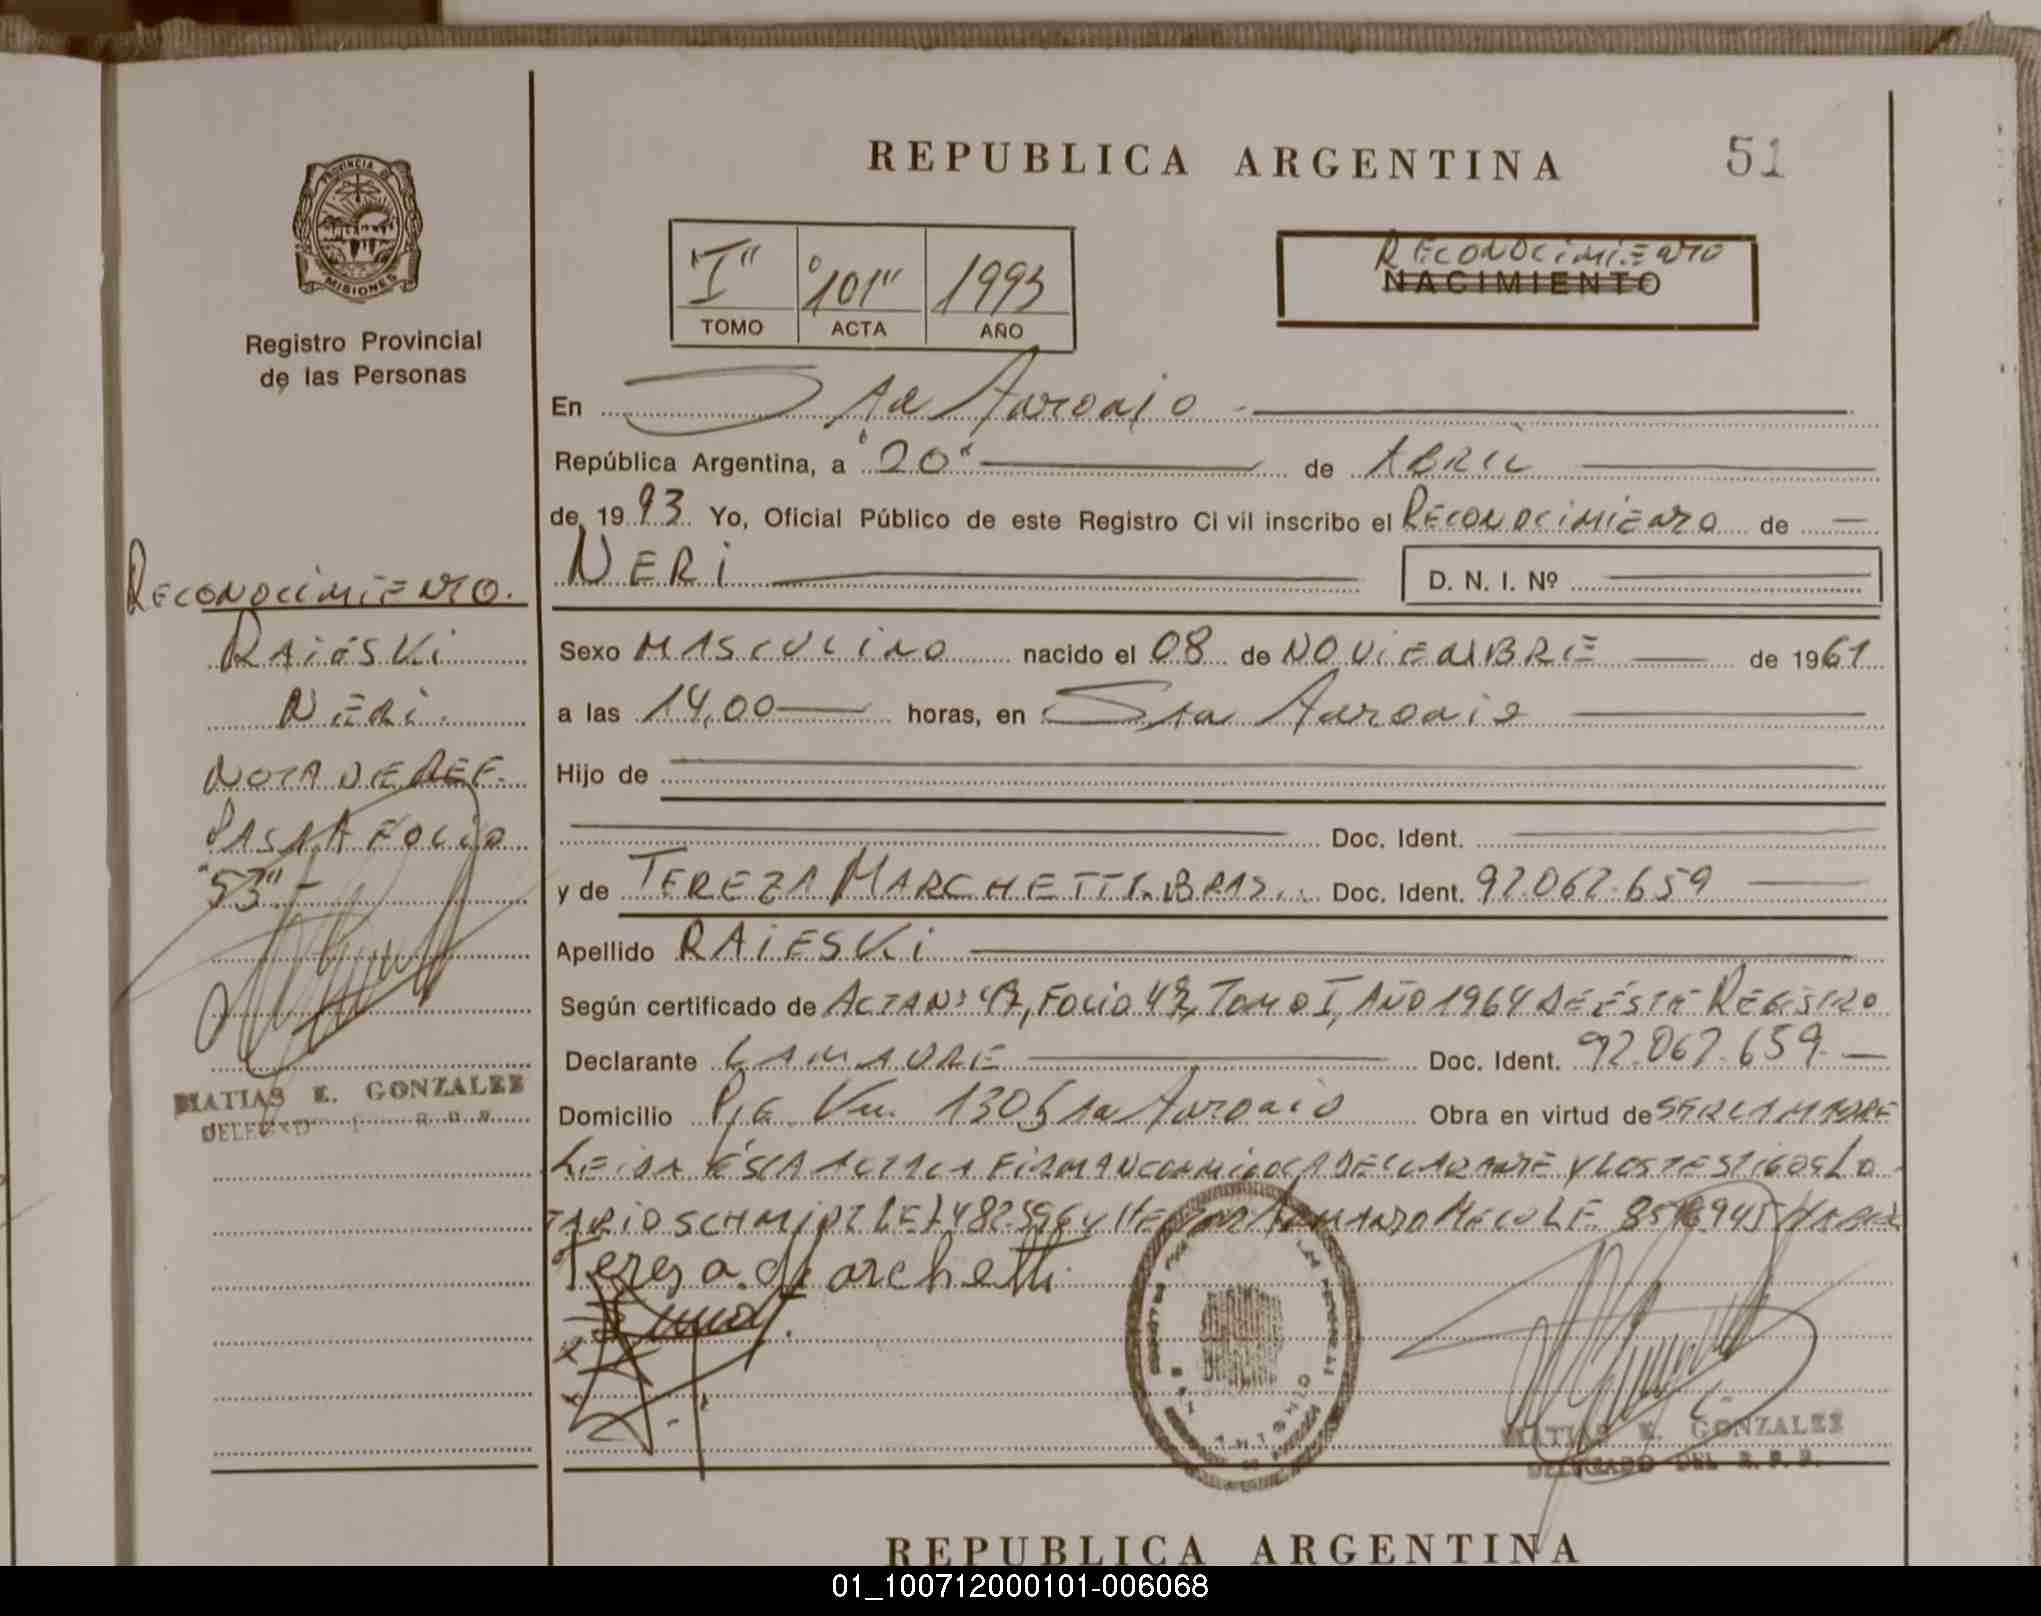 REPUBLICA ARGENTINA
51
PROVINCIA D
MISIONES
Registro Provincial
de las Personas
"I" "101" 1993
TOMO ACTA AÑO
RECONOCIMIENTO
NACIMIENTO
En Sta Antonio
República Argentina, a "20" de ABRIL
de 1993 Yo, Oficial Público de este Registro Civil inscribo el RECONOCIMIENTO de
NERI D. N. I. Nº
Sexo MASCULINO nacido el 08 de NOVIEMBRE de 1961
a las 14,00 horas, en Sta Antonio
Hijo de
Doc. Ident.
y de TEREZA MARCHETTI. BRAS.. Doc. Ident. 92.062.659
Apellido RAIESKI
Según certificado de ACTA Nº FOLIO TOMO I, AÑO 1964 DE ÉSTE REGISTRO
Declarante LA MADRE Doc. Ident. 92.062.659
Domicilio Pje. 130 Sta Antonio Obra en virtud de SER LA MADRE
LEIDA ÉSTA ACTA LA FIRMAN CONMIGO LA DECLARANTE Y LOS TESTIGOS LO
TARIO SCHMIDT LE
Tereza Marchetti
RECONOCIMIENTO.
RAIESKI
NERI.
NOTA DE REF.
PASA A FOLIO
"53"-
MATIAS E. GONZALEZ
MATIAS E. GONZALEZ
DELEGADO DEL R. P. P.
REPUBLICA ARGENTINA
01_100712000101-006068